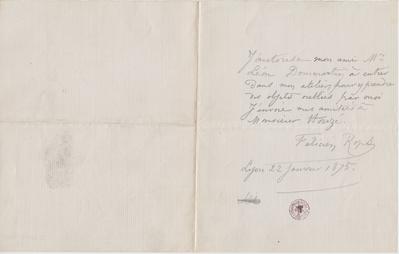 J'autorise mon ami Mr
Léon Dommartin à entrer
dans mon atelier, pour y prendre
des objets oubliés par moi
J'envoie mes amitiés à
Monsieur
Félicien Rops
Lyon 22 Janvier 1875.